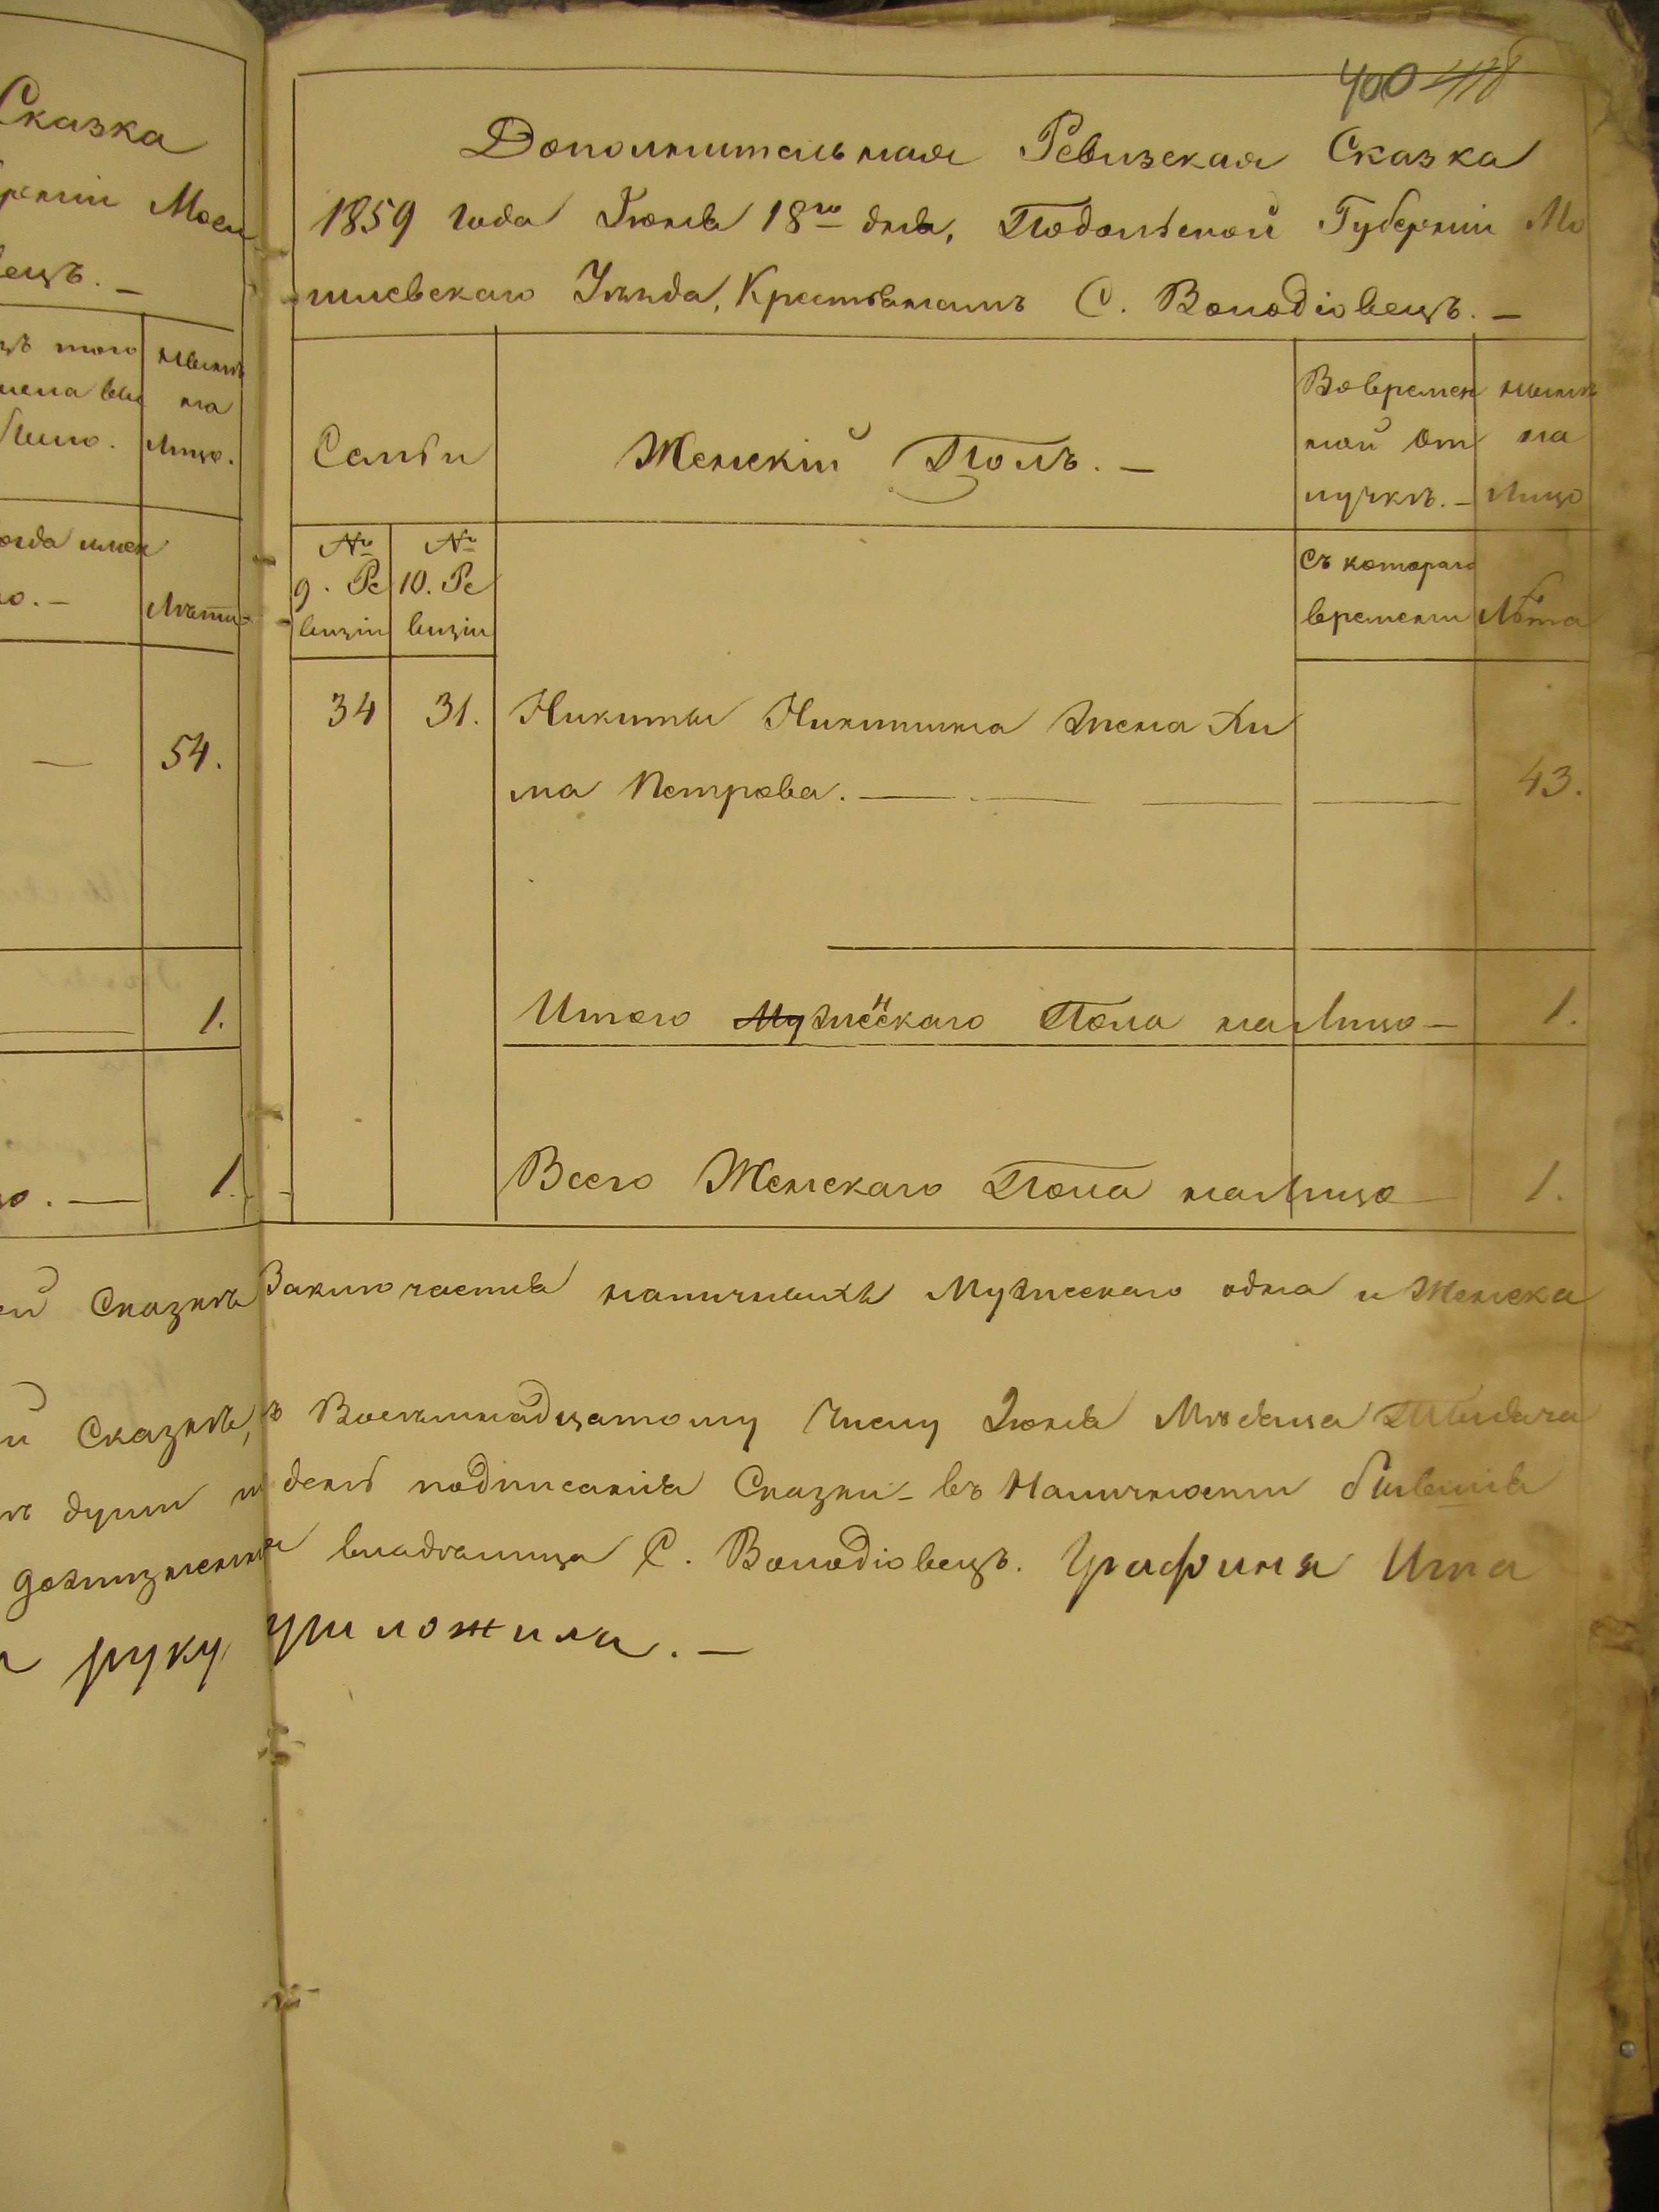 Сказка
Моги
400 418
Дополнительная Ревизская Сказка
1859 года Июня 18го дня, Подольской Губерніи Мо
гилевскаго Уѣзда, Крестьянамъ С. Володіовецъ. —
того
лицо.
Семьи
Женскій Полъ. —
Во времен
ной от
лучкѣ. —
нынѣ
на
лицо
№ 9. Ре
визіи
№ 10. Ре
визіи
Съ котораго
времени
Лѣта
Лѣта
34 31. Никиты Никитина жена Ан
на Петрова. — — — — 43.
— 54.
Итого Мужескаго Пола на лицо — 1.
1.
Всего Женскаго Пола на лицо — 1.
1.
Сказкѣ Заключается наличныхъ Мужескаго одна и Женска
Сказкѣ, Восемьнадцатому числу Іюня Мѣсяца Тысяча
души день подписанія Сказки — въ Наличности бывшія
владѣлица С. Володіовецъ. Графиня
руку приложила. —